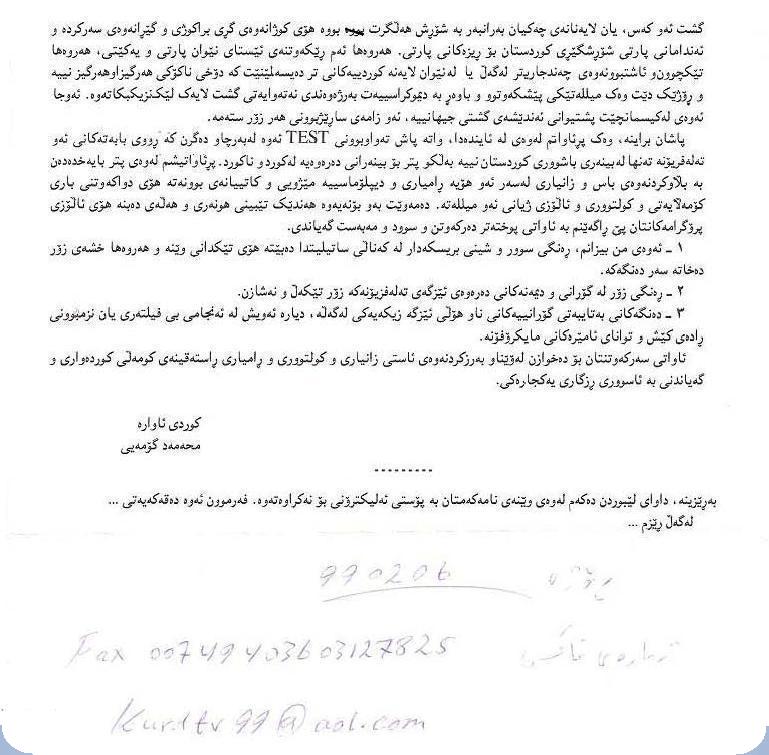 گشت ئەو کەس، یان لایەنانەی چەکیان بەرانبەر بە شۆڕش هەڵگرت بووە هۆی کوژانەوەی گڕی براکوژی و گێڕانەوەی سەرکردە و
ئەندامانی پارتی شۆڕشگێڕی کوردستان بۆ ڕیزەکانی پارتی. هەروەها ئەم ڕێکەوتنەی ئێستای نێوان پارتی و یەکێتی، هەروەها
تێکچوون‌و ئاشتبوونەوەی چەندجاریتر لەگەڵ یا لەنێوان لایەنە کوردییەکانی تر دەیسەلمێنێت کە دۆخی ناکۆکی هەرگیزاوهەرگیز نییە
و ڕۆژێک دێت وەک میللەتێکی پێشکەوتوو و باوەڕ بە دیموکراسییەت بەرژەوەندی نەتەوایەتی گشت لایەک لێک‌نزیکبکاتەوە. ئەوجا
ئەوەی لەکیسمانچێت پشتیوانی ئەندێشەی گشتی جیهانییە، ئەو زامەی ساڕێژبوونی هەر زۆر ستەمە.
پاشان براینە، وەک پڕئاواتم لەوەی لە ئایندەدا، واتە پاش تەواوبوونی TEST ئەوە لەبەرچاو دەگرن کە ڕووی بابەتەکانی ئەو
تەلەفزیۆنە تەنها لەبینەری باشووری کوردستان نییە بەڵکو پتر بۆ بینەرانی دەرەوەیە لەکوردو ناکورد. پڕئاواتیشم لەوەی پتر بایەخدەدەن
بە بڵاوکردنەوەی باس و زانیاری لەسەر ئەو هۆیە ڕامیاری و دیپلۆماسییە مێژویی و کاتییانەی بوونەتە هۆی دواکەوتنی باری
کۆمەلایەتی و کولتووری و ئاڵۆزی ژیانی ئەو میللەتە. دەمەوێت بەو بۆنەیەوە هەندێک تێبینی هونەری و هەڵەی دەبنە هۆی ئاڵۆزی
پرۆگرامەکانتان پێ ڕاگەێنم بە ئاواتی پوختەتر دەرکەوتن و سوود و مەبەست گەیاندی.
١ ـ ئەوەی من بیزانم، ڕەنگی سوور و شینی بریسکەدار لە کەناڵی ساتیلیتدا دەبێتە هۆی تێکدانی وێنە و هەروەها خشەی زۆر
دەخاتە سەر دەنگەکە.
٢ ـ ڕەنگی زۆر لە گۆرانی و دیمەنەکانی دەرەوەی ئێزگەی تەلەفزیۆنەکە زۆر تێکەڵ و نەشازن.
٣ ـ دەنگەکانی بەتایبەتی گۆرانییەکانی ناو هۆڵی ئێزگە زیکەیەکی لەگەڵە، دیارە ئەویش لە ئەنجامی بی فیلتەری یان نزمبوونی
ڕادەی کێش و توانای ئامێرەکانی مایکرۆفۆنە.
ئاواتی سەرکەوتنتان بۆ دەخوازن لەوێناو بەرزکردنەوەی ئاستی زانیاری و کولتووری و ڕامیاری ڕاستەقینەی کومەڵی کوردەواری و
گەیاندنی بە ئاسووری ڕزگاری یەکجارەکی.
کوردی ئاوارە
محەمەد گۆمەیی
---------
بەڕێزینە، داوای لێبوردن دەکەم لەوەی وێنەی نامەکەمتان بە پۆستی ئەلیکترۆنی بۆ نەکراوەتەوە. فەرموون ئەوە دەقەکەیەتی ...
لەگەڵ ڕێزم ...
990206
Fax 00749403603127825
Kurdtv99@aol.com